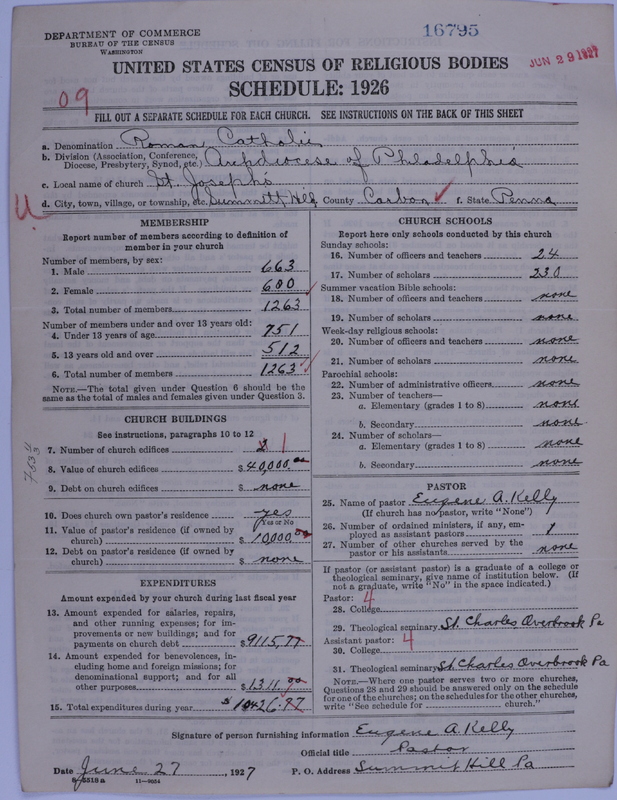 DEPARTMENT OF COMMERCE
BUREAU OF THE CENSUS
WASHINGTON
16795
JUN 29 1927
UNITED STATES CENSUS OF RELIGIOUS BODIES
SCHEDULE: 1926
09
FILL OUT A SEPARATE SCHEDULE FOR EACH CHURCH. SEE INSTRUCTIONS ON THE BACK OF THIS SHEET
a. Denomination Roman Catholic
b. Division (Association, Conference, Diocese, Presbytery, Synod, etc.) Archdiocese of Philadelphia
c. Local name of church St. Joseph's
d. City, town, village, or township, etc. Summitt Hill County Carbon f. State Penna
U
MEMBERSHIP
Report number of members according to definition of
member in your church
Number of members, by sex:
1. Male 663
2. Female 600
3. Total number of members 1263
Number of members under and over 13 years old:
4. Under 13 years of age 751
5. 13 years old and over 512
6. Total number of members 1263
NOTE.—The total given under Question 6 should be the
same as the total of males and females given under Question 3.
CHURCH BUILDINGS
See instructions, paragraphs 10 to 12
7. Number of church edifices 1
8. Value of church edifices $ 40,000.00
9. Debt on church edifices $ none
10. Does church own pastor's residence yes
Yes or No
11. Value of pastor's residence (if owned by
church) $ 10,000.00
12. Debt on pastor's residence (if owned by
church) $ none
EXPENDITURES
Amount expended by your church during last fiscal year
13. Amount expended for salaries, repairs,
and other running expenses; for im-
provements or new buildings; and for
payments on church debt $ 9115.77
14. Amount expended for benevolences, in-
cluding home and foreign missions; for
denominational support; and for all
other purposes $ 1311.00
15. Total expenditures during year $ 10426.77
CHURCH SCHOOLS
Report here only schools conducted by this church
Sunday schools:
16. Number of officers and teachers 24
17. Number of scholars 230
Summer vacation Bible schools:
18. Number of officers and teachers none
19. Number of scholars none
Week-day religious schools:
20. Number of officers and teachers none
21. Number of scholars none
Parochial schools:
22. Number of administrative officers none
23. Number of teachers—
a. Elementary (grades 1 to 8) none
b. Secondary none
24. Number of scholars—
a. Elementary (grades 1 to 8) none
b. Secondary none
PASTOR
25. Name of pastor Eugene A. Kelly
(If church has no pastor, write "None")
26. Number of ordained ministers, if any, em-
ployed as assistant pastors 1
27. Number of other churches served by the
pastor or his assistants none
If pastor (or assistant pastor) is a graduate of a college or
theological seminary, give name of institution below. (If
not a graduate, write "No" in the space indicated.)
Pastor: 4
28. College
29. Theological seminary St. Charles Overbrook Pa
Assistant pastor: 4
30. College
31. Theological seminary St. Charles Overbrook Pa
NOTE.—Where one pastor serves two or more churches,
Questions 28 and 29 should be answered only on the schedule
for one of the churches; on the schedules for the other churches,
write "See schedule for church."
Signature of person furnishing information Eugene A. Kelly
Official title Pastor
Date June 27, 1927 P. O. Address Summit Hill Pa
8-5518a 11—9054